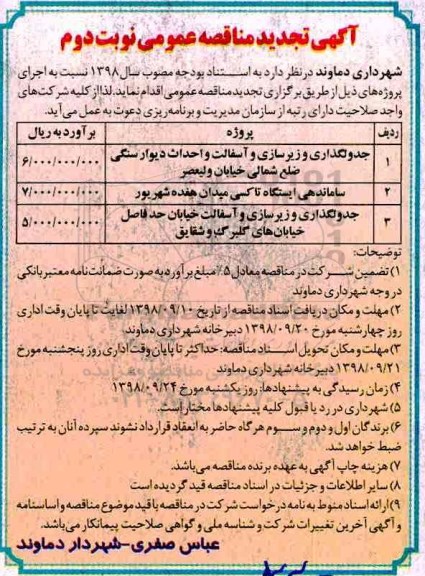 آگهی تجدید مناقصه عمومی نوبت دوم
شهرداری دماوند در نظر دارد به استناد بودجه مصوب سال ۱۳۹۸ نسبت به اجرای
پروژه‌های ذیل از طریق برگزاری تجدید مناقصه عمومی اقدام نماید. لذا از کلیه شرکت‌های
واجد صلاحیت دارای رتبه از سازمان مدیریت و برنامه‌ریزی دعوت به عمل می‌آید.
ردیف پروژه برآورد به ریال
۱ جدولگذاری و زیرسازی و آسفالت و احداث دیوار سنگی ضلع شمالی خیابان ولیعصر ۶/۰۰۰/۰۰۰/۰۰۰
۲ ساماندهی ایستگاه تاکسی میدان هفده شهریور ۷/۰۰۰/۰۰۰/۰۰۰
۳ جدولگذاری و زیرسازی و آسفالت خیابان حد فاصل خیابان‌های گلبرگ و شقایق ۵/۰۰۰/۰۰۰/۰۰۰
توضیحات:
۱) تضمین شرکت در مناقصه معادل ۵٪ مبلغ برآورد به صورت ضمانت‌نامه معتبر بانکی
در وجه شهرداری دماوند
۲) مهلت و مکان دریافت اسناد مناقصه از تاریخ ۱۳۹۸/۰۹/۱۰ لغایت تا پایان وقت اداری
روز چهارشنبه مورخ ۱۳۹۸/۰۹/۲۰ دبیرخانه شهرداری دماوند
۳) مهلت و مکان تحویل اسناد مناقصه: حداکثر تا پایان وقت اداری روز پنجشنبه مورخ
۱۳۹۸/۰۹/۲۱ دبیرخانه شهرداری دماوند
۴) زمان رسیدگی به پیشنهادها: روز یکشنبه مورخ ۱۳۹۸/۰۹/۲۴
۵) شهرداری در رد یا قبول کلیه پیشنهادها مختار است.
۶) برندگان اول و دوم و سوم هرگاه حاضر به انعقاد قرارداد نشوند سپرده آنان به ترتیب
ضبط خواهد شد.
۷) هزینه چاپ آگهی به عهده برنده مناقصه می‌باشد.
۸) سایر اطلاعات و جزئیات در اسناد مناقصه قید گردیده است
۹) ارائه اسناد منوط به نامه درخواست شرکت در مناقصه با قید موضوع مناقصه و اساسنامه
و آگهی آخرین تغییرات شرکت و شناسه ملی و گواهی صلاحیت پیمانکار می‌باشد.
عباس صفری-شهردار دماوند